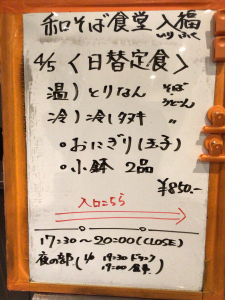 和そば食堂 入福
いりふく
4/5 〈日替定食〉
温）とりなん そば・うどん
冷）冷しタヌキ 〃
・おにぎり（玉子）
・小鉢 2品
¥850.-
入口こちら
17:30～20:00(CLOSE)
夜の部（L/o 19:30 ドリンク
19:00 食事）